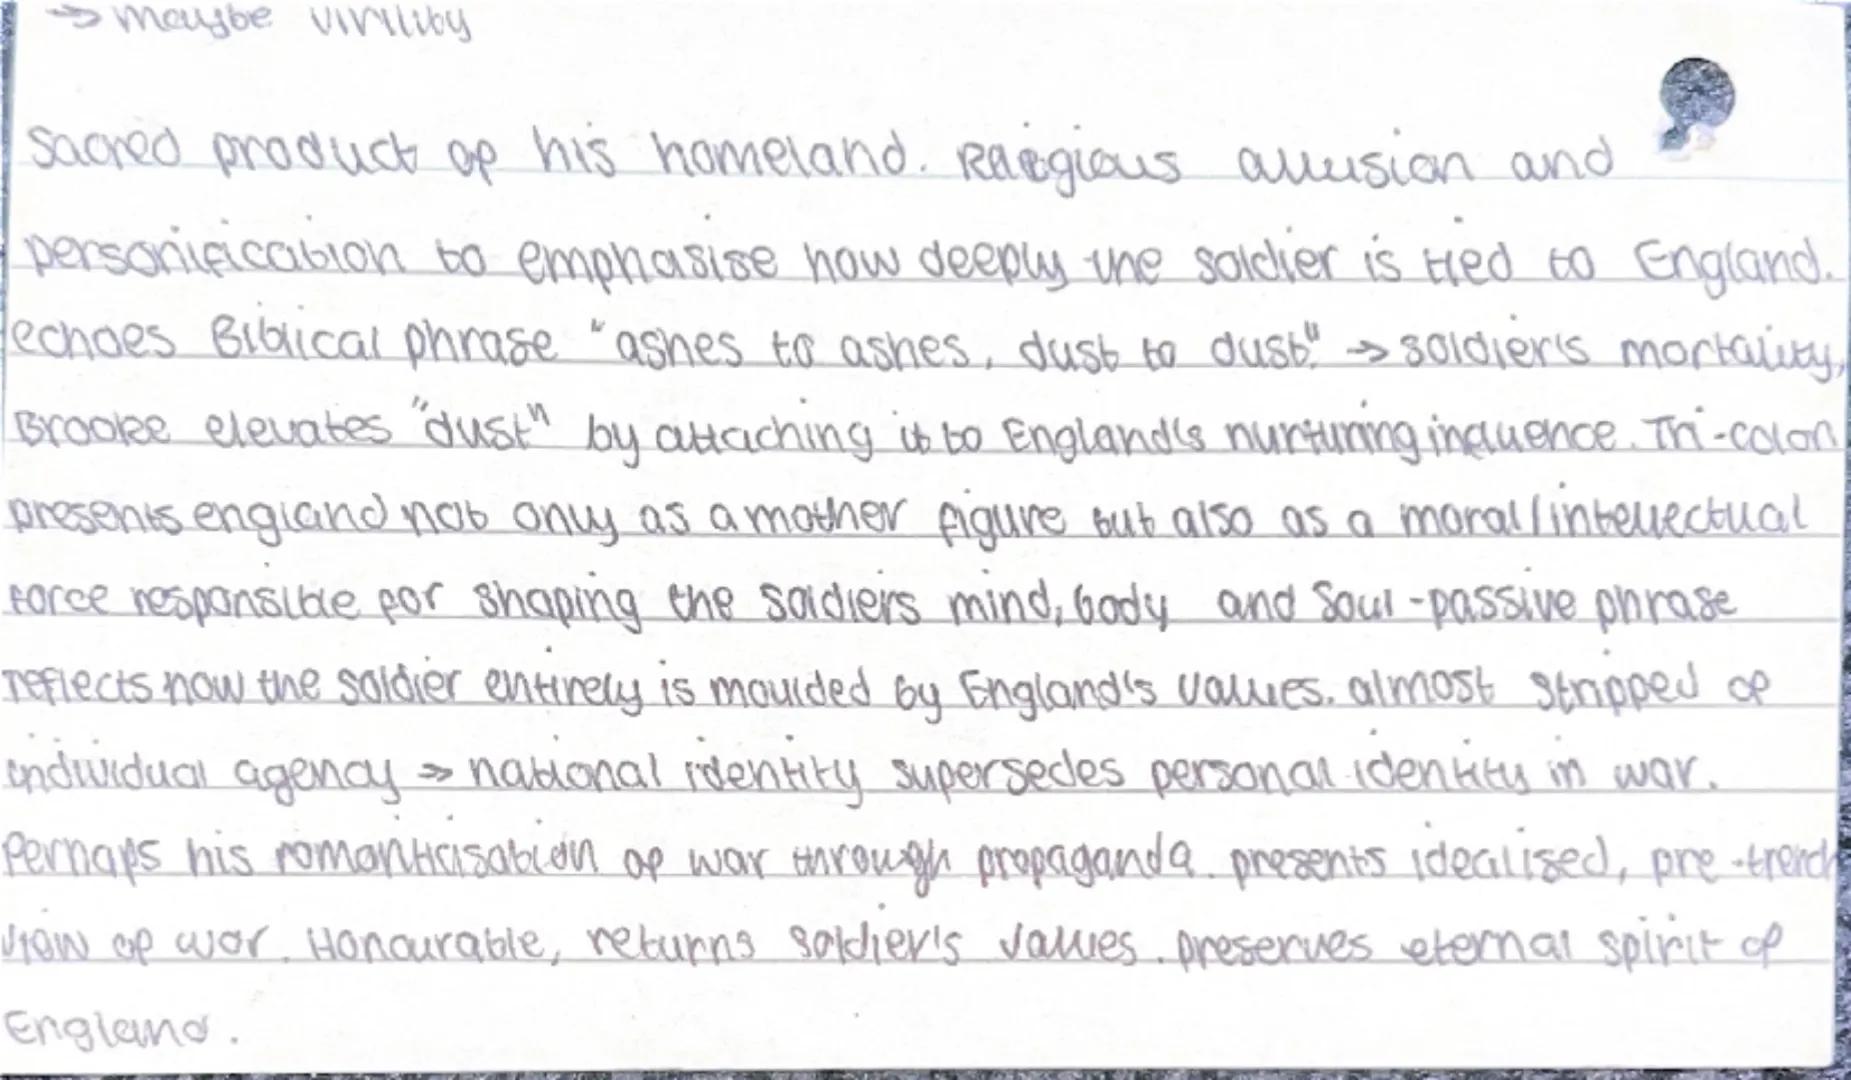 → maybe virility
sacred product of his homeland. Religious allusion and
personification to emphasise how deeply the soldier is tied to England.
echoes Biblical phrase "ashes to ashes, dust to dust" → soldier's mortality,
Brooke elevates "dust" by attaching it to England's nurturing influence. Tri-colon
presents england not only as a mother figure but also as a moral/intellectual
force responsible for shaping the soldiers mind, body and soul - passive phrase
reflects how the soldier entirely is moulded by England's values. almost stripped of
individual agency → national identity supersedes personal identity in war.
Perhaps his romanticisation of war through propaganda. presents idealised, pre-trench
view of war. Honourable, returns soldier's values. preserves eternal spirit of
England.